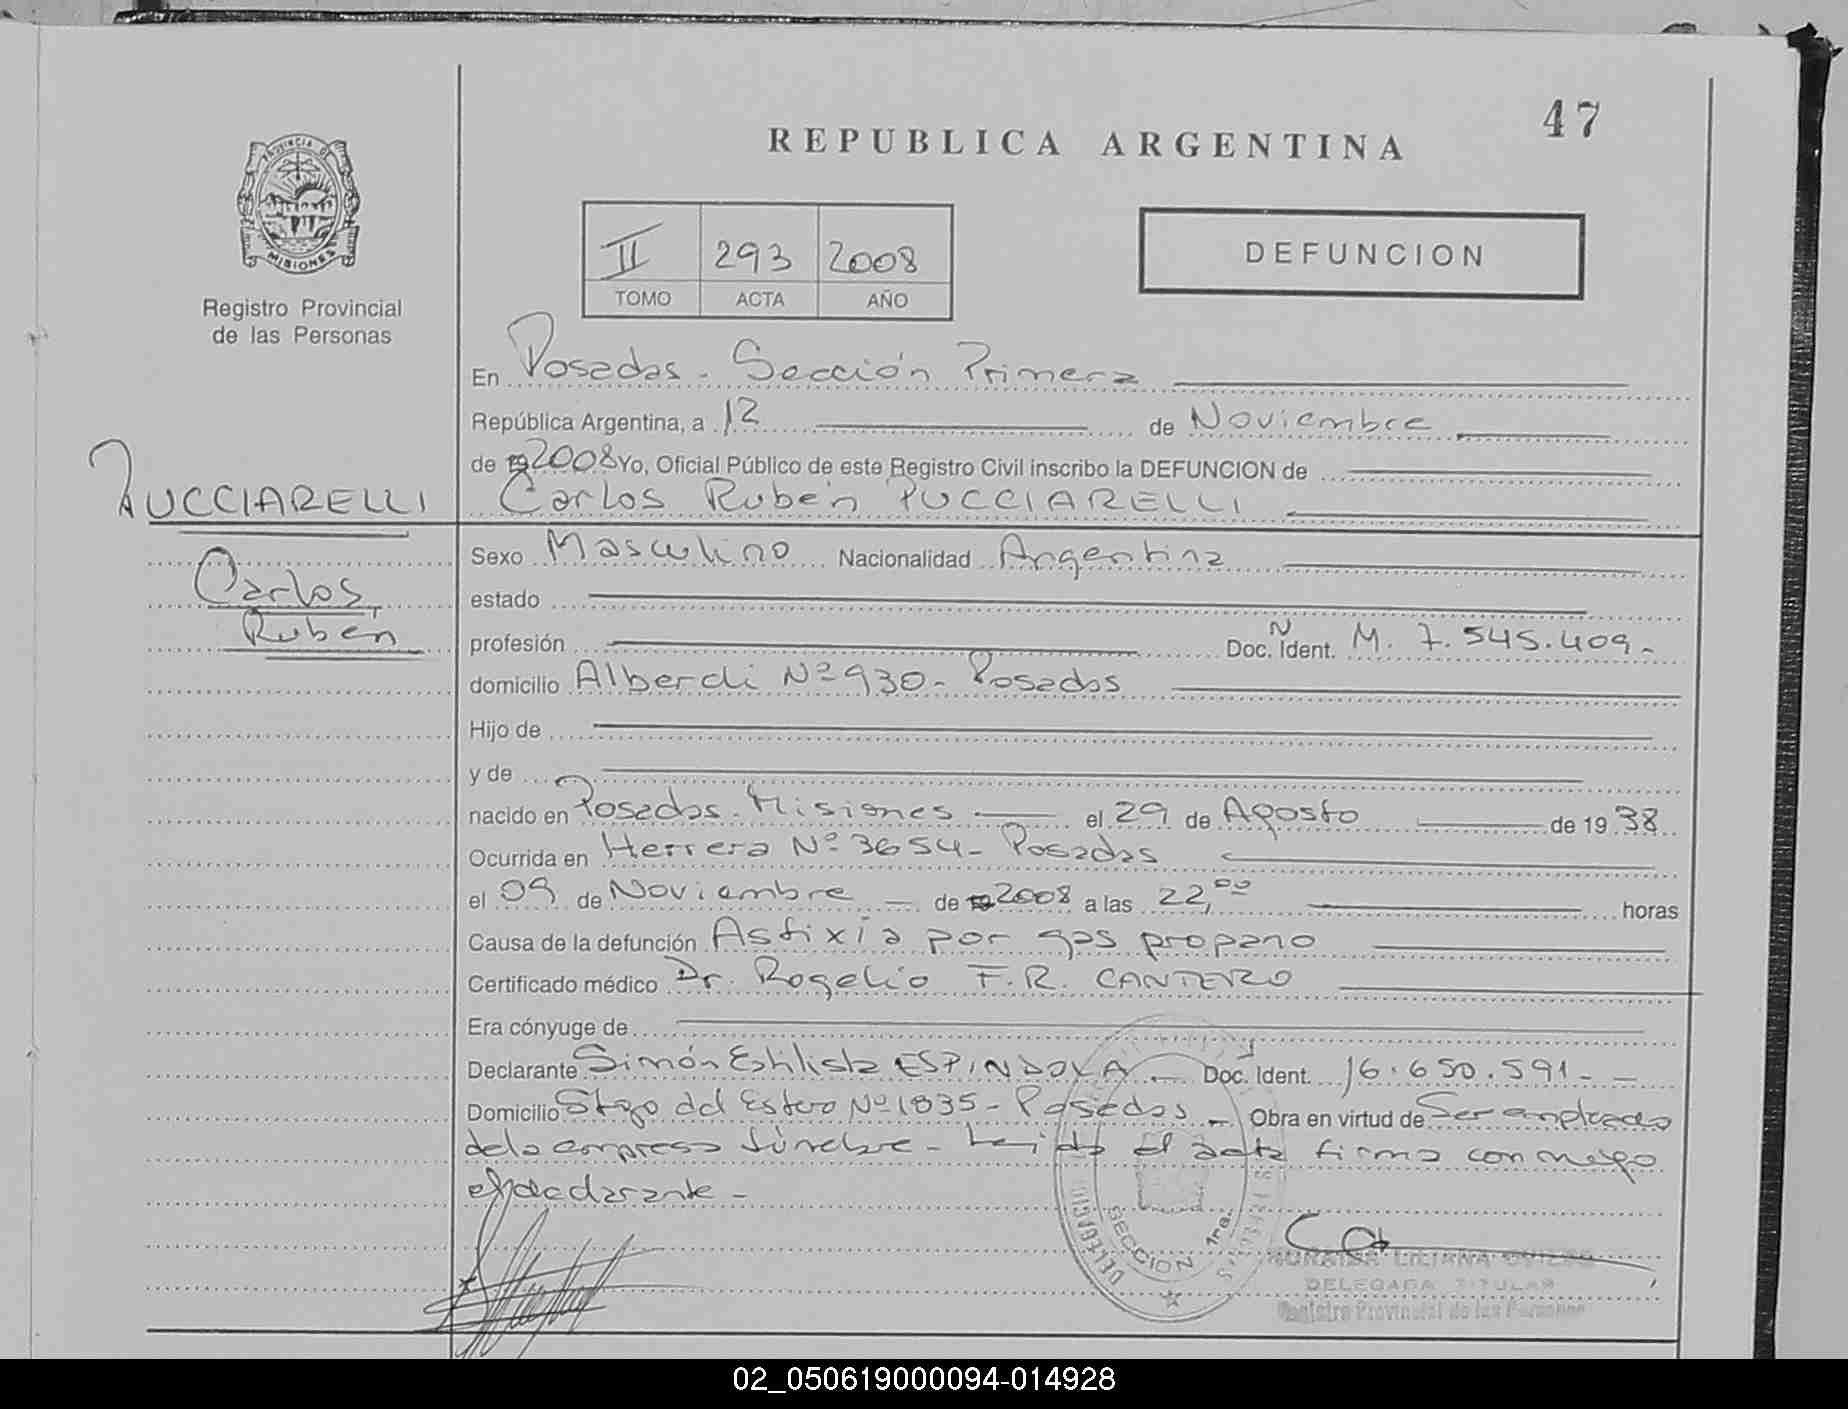 47
REPUBLICA ARGENTINA
PROVINCIA DE
MISIONES
Registro Provincial
de las Personas
II 293 2008
TOMO ACTA AÑO
DEFUNCION
En Posadas - Sección Primera
República Argentina, a 12 de Noviembre
de 2008 Yo, Oficial Público de este Registro Civil inscribo la DEFUNCION de
PUCCIARELLI
Carlos Rubén
Carlos Rubén PUCCIARELLI
Sexo Masculino Nacionalidad Argentina
estado
profesión Doc. N Ident. M. 7.545.409.-
domicilio Alberdi Nº 930 - Posadas
Hijo de
y de
nacido en Posadas - Misiones el 29 de Agosto de 19 38
Ocurrida en Herrera Nº 3654 - Posadas
el 09 de Noviembre de 2008 a las 22,00 horas
Causa de la defunción Asfixia por gas propano
Certificado médico Dr. Rogelio F.R. CANTERO
Era cónyuge de
Declarante Simón ESPINDOLA Doc. Ident. 16.650.591 -
Domicilio Stgo del Estero Nº 1835 - Posadas - Obra en virtud de Ser empleado
de la empresa fúnebre - Leida el acta firma conmigo
el declarante -
DELEGACION
SECCION 1ra.
LILIANA
DELEGADA TITULAR
Registro Provincial de las Personas
02_050619000094-014928